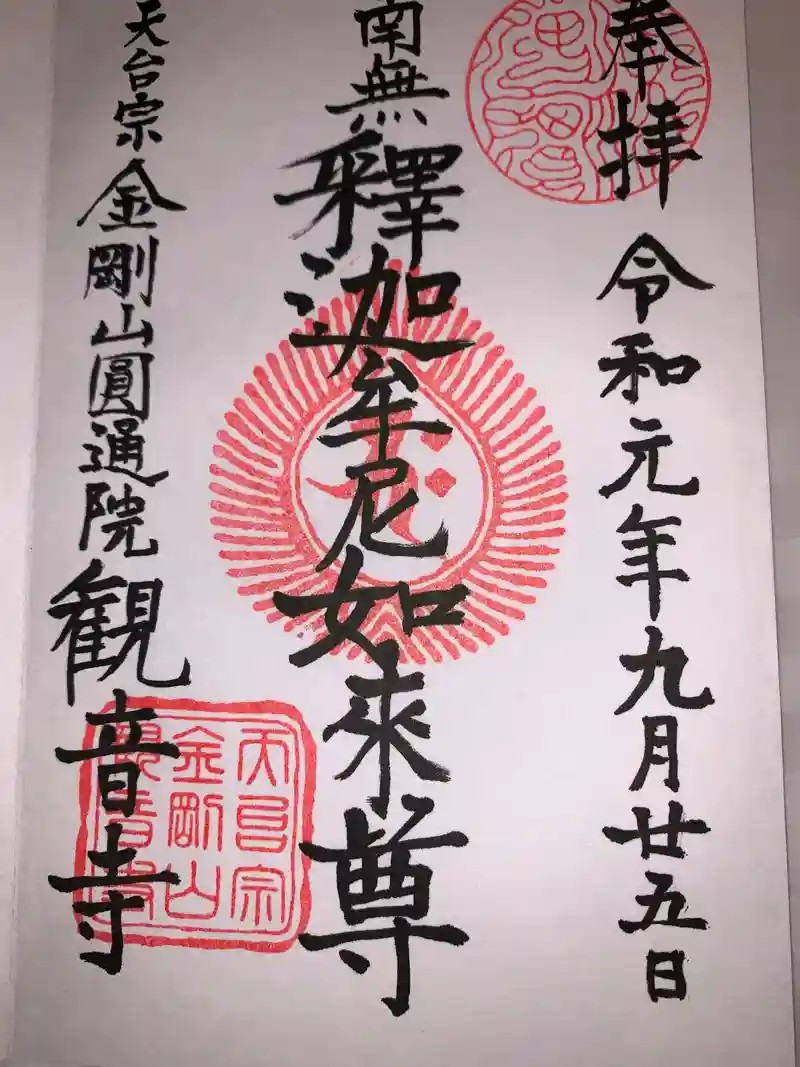 奉拝
令和元年九月廿五日
南無釋迦牟尼如來尊
天台宗金剛山圓通院観音寺
天台宗
金剛山
観音寺